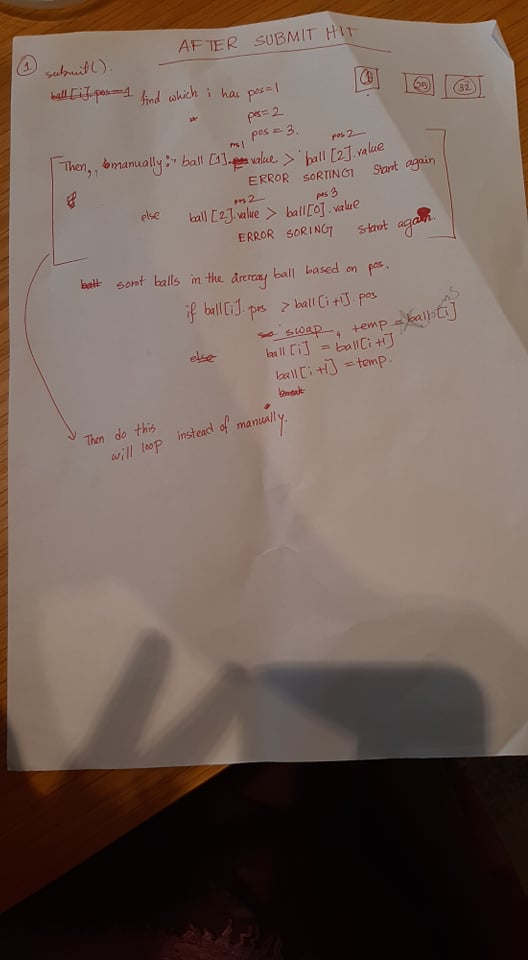 AFTER SUBMIT HIT
1 submit().
ball[i].pos=1 find which i has pos=1
25 32
pos=2
pos=3.
pos 1 pos 2
Then, manually:- ball [1]. value > ball [2].value
ERROR SORTING Start again
pos 2 pos 3
else ball [2].value > ball[0].value
ERROR SORING start again.
ball sorot balls in the array ball based on pos.
if ball[i].pos > ball[i+1].pos
swap, temp = ball[i]
else ball[i] = ball[i+1]
ball[i+1] = temp.
break
Then do this
will loop instead of manually.